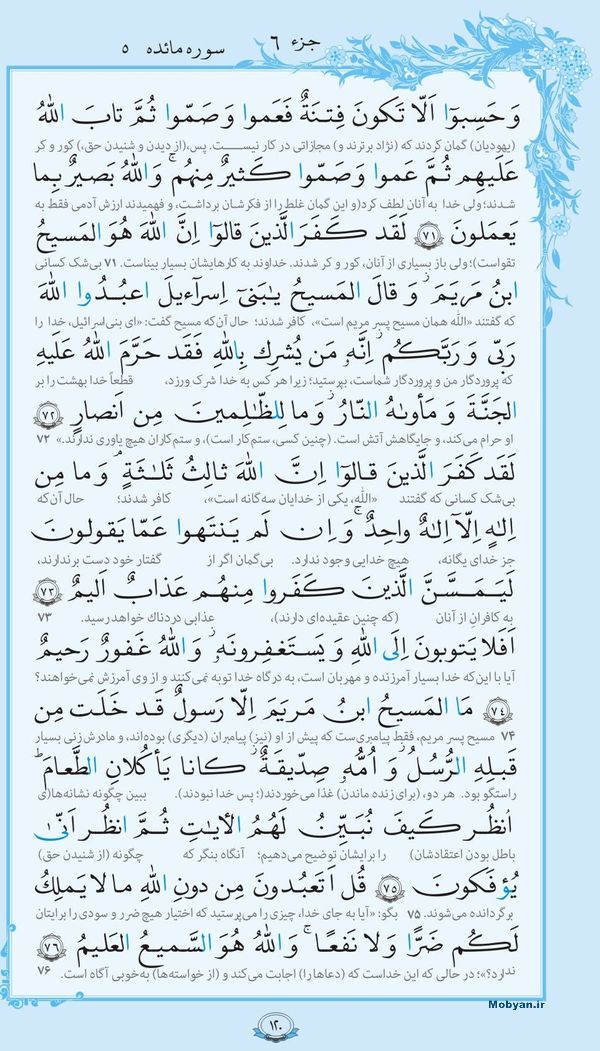 جزء ۶
سوره مائده ۵
وَ حَسِبوٓا اَلّا تَكونَ فِتنَةٌ فَعَموا وَ صَمّوا ثُمَّ تابَ اللّٰهُ
(یهودیان) گمان کردند که (نژاد برترند و) مجازاتی در کار نیست. پس،(از دیدن و شنیدن حق،) کور و کر
عَلَيهِم ثُمَّ عَموا وَ صَمّوا كَثيرٌ مِنهُم ۚ وَ اللّٰهُ بَصيرٌ بِما
شدند؛ ولی خدا به آنان لطف کرد(و این گمان غلط را از فکرشان برداشت، و فهمیدند ارزش آدمی فقط به
يَعمَلونَ ﴿٧١﴾ لَقَد كَفَرَ الَّذينَ قالوٓا اِنَّ اللّٰهَ هُوَ المَسيحُ
تقواست)؛ ولی باز بسیاری از آنان، کور و کر شدند. خداوند به کارهایشان بسیار بیناست. ۷۱ بی‌شک کسانی
ابنُ مَريَمَ ۖ وَ قالَ المَسيحُ يٰبَنىٓ اِسرٓاءيلَ اعبُدُوا اللّٰهَ
که گفتند «الله همان مسیح پسر مریم است»، کافر شدند؛ حال آن‌که مسیح گفت: «ای بنی‌اسرائیل، خدا را
رَبّى وَ رَبَّكُم ۖ اِنَّهٗ مَن يُشرِك بِاللّٰهِ فَقَد حَرَّمَ اللّٰهُ عَلَيهِ
که پروردگار من و پروردگار شماست، بپرستید؛ زیرا هر کس به خدا شرک ورزد، قطعاً خدا بهشت را بر
الجَنَّةَ وَ مَأوىٰهُ النّارُ ۖ وَ ما لِلظّالِمينَ مِن اَنصارٍ ﴿٧٢﴾
او حرام می‌کند، و جایگاهش آتش است. (چنین کسی، ستم‌کار است)، و ستم‌کاران هیچ یاوری ندارند.» ۷۲
لَقَد كَفَرَ الَّذينَ قالوٓا اِنَّ اللّٰهَ ثالِثُ ثَلٰثَةٍ ۘ وَ ما مِن
بی‌شک کسانی که گفتند «الله، یکی از خدایان سه‌گانه است»، کافر شدند؛ حال آن‌که
اِلٰهٍ اِلّآ اِلٰهٌ واحِدٌ ۚ وَ اِن لَم يَنتَهوا عَمّا يَقولونَ
جز خدای یگانه، هیچ خدایی وجود ندارد. بی‌گمان اگر از گفتار خود دست برندارند،
لَيَمَسَّنَّ الَّذينَ كَفَروا مِنهُم عَذابٌ اَليمٌ ﴿٧٣﴾
به کافرانِ از آنان (که چنین عقیده‌ای دارند)، عذابی دردناک خواهد رسید. ۷۳
اَفَلا يَتوبونَ اِلَى اللّٰهِ وَ يَستَغفِرونَهٗ ۚ وَ اللّٰهُ غَفورٌ رَحيمٌ
آیا با این‌که خدا بسیار آمرزنده و مهربان است، به درگاه خدا توبه نمی‌کنند و از وی آمرزش نمی‌خواهند؟
﴿٧٤﴾ مَا المَسيحُ ابنُ مَريَمَ اِلّا رَسولٌ قَد خَلَت مِن
۷۴ مسیح پسر مریم، فقط پیامبری‌ست که پیش از او (نیز) پیامبران (دیگری) بوده‌اند، و مادرش زنی بسیار
قَبلِهِ الرُّسُلُ وَ اُمُّهٗ صِدّيقَةٌ ۖ كانا يَأكُلانِ الطَّعامَ ۗ
راستگو بود. هر دو، (برای زنده ماندن) غذا می‌خوردند(؛ پس خدا نبودند). ببین چگونه نشانه‌ها(ی
اُنظُر كَيفَ نُبَيِّنُ لَهُمُ الـٔاياتِ ثُمَّ انظُر اَنّىٰ
باطل بودن اعتقادشان) را برایشان توضیح می‌دهیم؛ آنگاه بنگر که چگونه (از شنیدن حق)
يُؤفَكونَ ﴿٧٥﴾ قُل اَتَعبُدونَ مِن دونِ اللّٰهِ ما لا يَملِكُ
برگردانده می‌شوند. ۷۵ بگو: «آیا به جای خدا، چیزی را می‌پرستید که اختیار هیچ ضرر و سودی را برایتان
لَكُم ضَرًّا وَ لا نَفعًا ۚ وَ اللّٰهُ هُوَ السَّميعُ العَليمُ ﴿٧٦﴾
ندارد؟»؛ در حالی که این خداست که (دعاها را) اجابت می‌کند و (از خواسته‌ها) به‌خوبی آگاه است. ۷۶
Mobyan.ir
۱۲۰